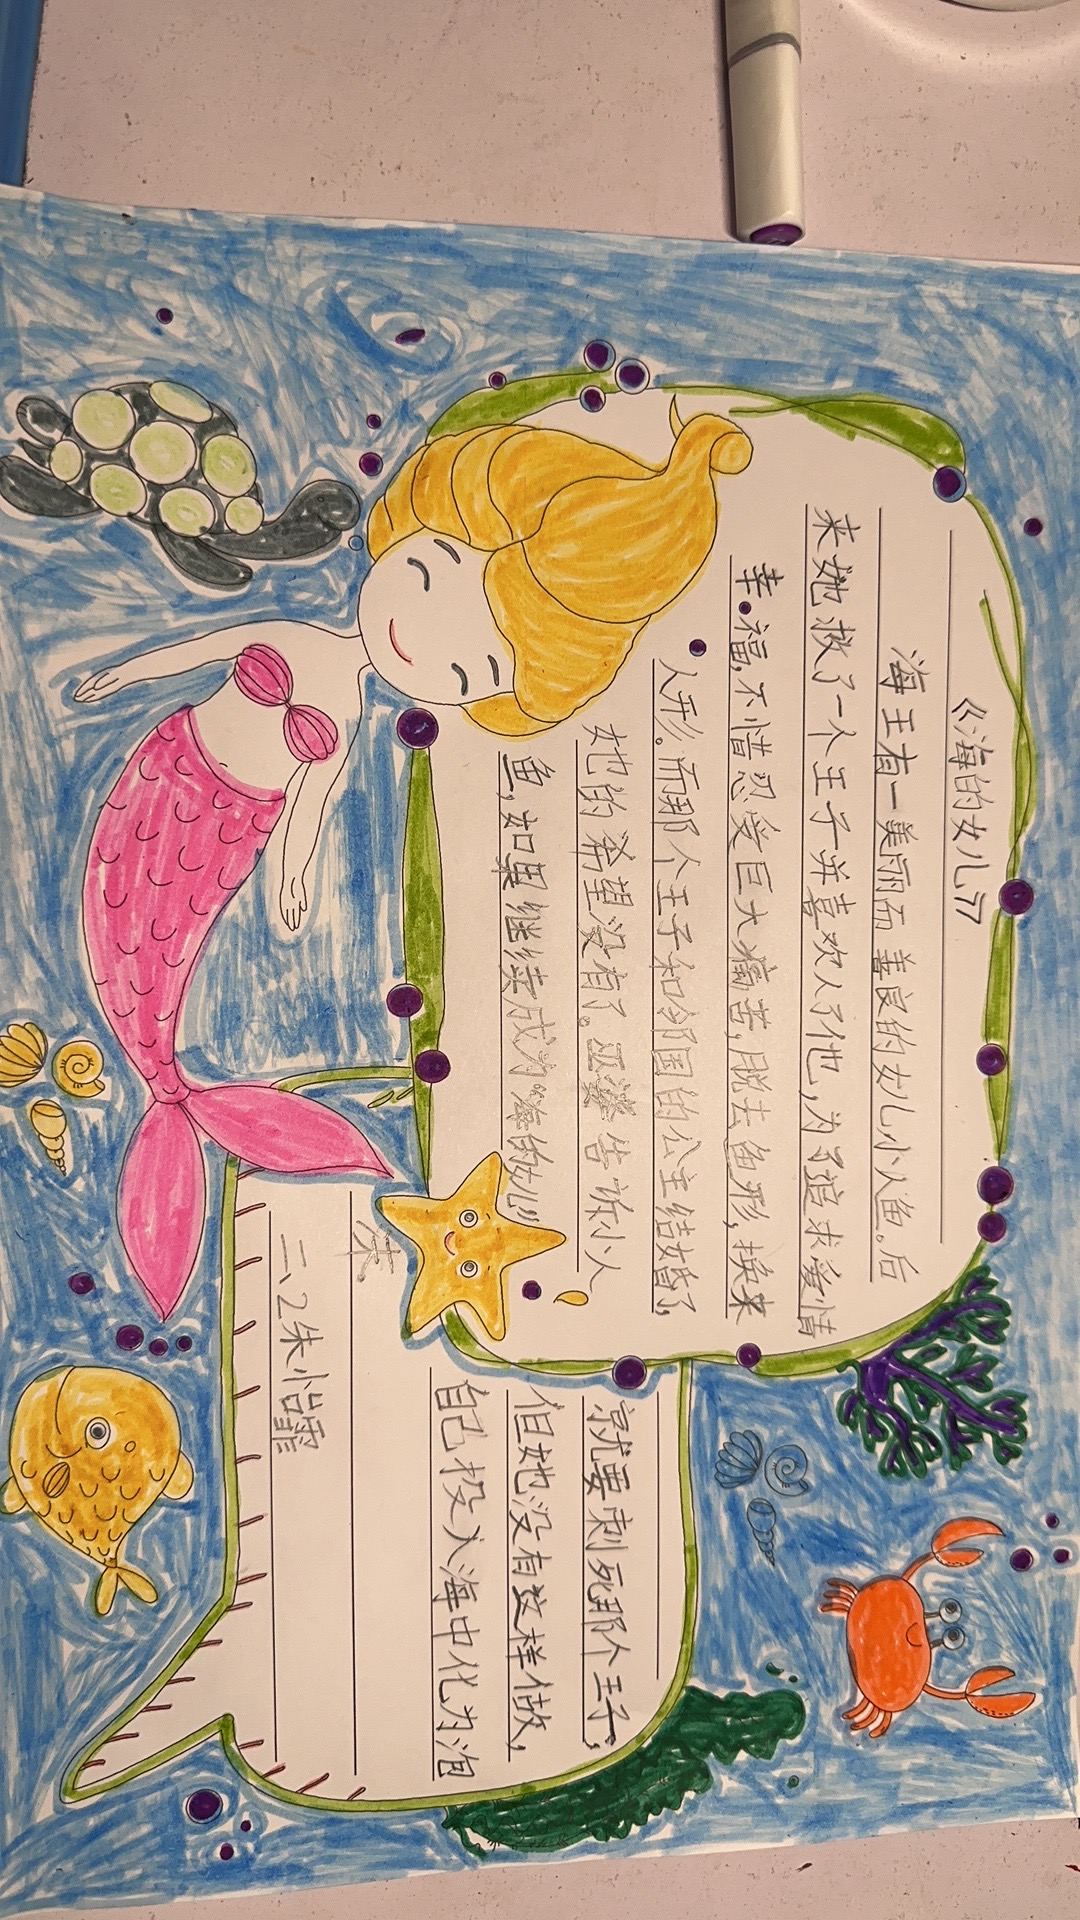 《海的女儿》
海王有一美丽而善良的女儿小人鱼。后
来她救了一个王子并喜欢人了他,为了追求爱情
幸福,不惜忍受巨大痛苦,脱去鱼形,换来
人形。而那个王子和邻国的公主结婚了,
她的希望没有了。巫婆告诉小人
鱼,如果继续成为“海的女儿”
就要刺死那个王子,
但她没有这样做,
自己投入海中化为泡
沫。
二、2朱怡霏